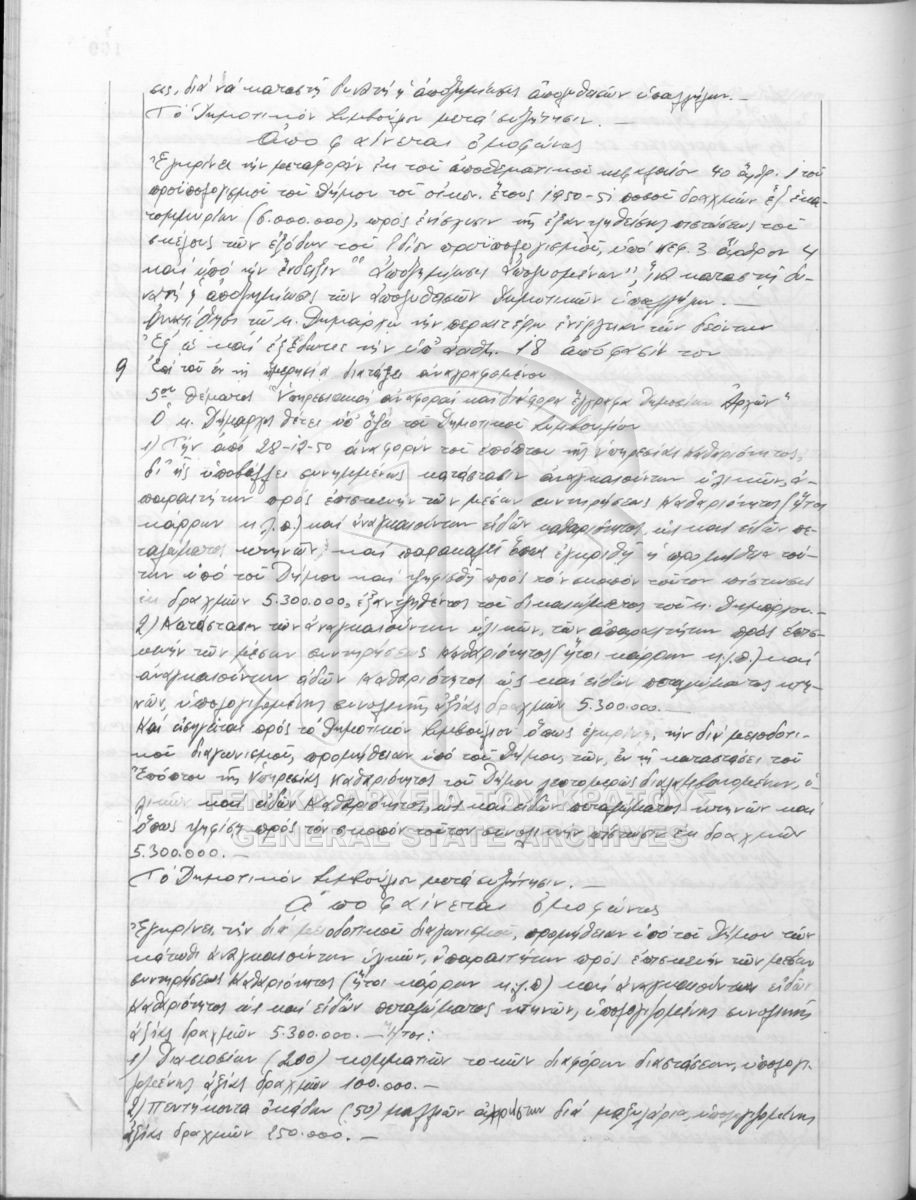 σις, διά νά καταστῇ δυνατή ἡ ἀποζημίωσις ἀπολυθέντων ὑπαλλήλων. —
Τό Δημοτικόν Συμβούλιον μετά συζήτησιν. —
Ἀποφαίνεται ὁμοφώνως
Ἐγκρίνει τήν μεταφοράν ἐκ τοῦ ἀποθεματικοῦ κεφαλαίου 40 ἄρθρ. 1 τοῦ
προϋπολογισμοῦ τοῦ Δήμου τοῦ οἰκον. ἔτους 1950-51 ποσοῦ δραχμῶν ἕξ ἑκα-
τομμυρίων (6.000.000), πρός ἐνίσχυσιν τῆς ἐξαντληθείσης πιστώσεως τοῦ
σκέλους τῶν ἐξόδων τοῦ ἰδίου προϋπολογισμοῦ, ὑπό κεφ. 3 ἄρθρον 4
καί ὑπό τήν ἔνδειξιν "ἀποζημίωσις ἀπολυομένων", ἵνα καταστῇ δυ-
νατή ἡ ἀποζημίωσις τῶν ἀπολυθέντων δημοτικῶν ὑπαλλήλων. —
Ἀνατίθησι τῷ κ. Δημάρχῳ τήν περαιτέρω ἐνέργειαν τῶν δεόντων
Ἐφ' ᾧ καί ἐξέδωκε τήν ὑπ' ἀριθ. 18 ἀπόφασίν του
9 Ἐπί τοῦ ἐν τῇ ἡμερησίᾳ διατάξει ἀναγραφομένου
5ου θέματος "Ὑπηρεσιακαί ἀναφοραί καί διάφορα ἔγγραφα Δημοσίων Ἀρχῶν"
Ὁ κ. Δήμαρχος θέτει ὑπ' ὄψει τοῦ Δημοτικοῦ Συμβουλίου
1) Τήν ἀπό 28-12-50 ἀναφοράν τοῦ ἐπόπτου τῆς ὑπηρεσίας καθαριότητος,
δι' ἧς ὑποβάλλει συνημμένως κατάστασιν ἀναγκαιούντων ὑλικῶν, ἀ-
παραιτήτων πρός ἐπισκευήν τῶν μέσων συντηρήσεως καθαριότητος (ἤτοι
κάρρων κ.λ.π.) καί ἀναγκαιούντων εἰδῶν καθαριότητος, ὡς καί εἰδῶν πε-
ταλώματος κτηνῶν, καί παρακαλεῖ ὅπως ἐγκριθῇ ἡ προμήθεια τού-
των ὑπό τοῦ Δήμου καί ψηφισθῇ πρός τόν σκοπόν τοῦτον πίστωσις
ἐκ δραχμῶν 5.300.000, ἐξαντληθέντος τοῦ δικαιώματος τοῦ κ. Δημάρχου. —
2) Κατάστασιν τῶν ἀναγκαιούντων ὑλικῶν, τῶν ἀπαραιτήτων πρός ἐπισ-
κευήν τῶν μέσων συντηρήσεως καθαριότητος (ἤτοι κάρρων κ.λ.π.) καί
ἀναγκαιούντων εἰδῶν καθαριότητος ὡς καί εἰδῶν πεταλώματος κτη-
νῶν, ὑπολογιζομένης συνολικῆς ἀξίας δραχμῶν 5.300.000. —
Καί εἰσηγεῖται πρός τό Δημοτικόν Συμβούλιον ὅπως ἐγκρίνῃ, τήν διά μειοδοτι-
κοῦ διαγωνισμοῦ, προμήθειαν ὑπό τοῦ Δήμου, τῶν, ἐν τῇ καταστάσει τοῦ
Ἐπόπτου τῆς Ὑπηρεσίας Καθαριότητος τοῦ Δήμου λεπτομερῶς διαλαμβανομένων, ὑ-
λικῶν καί εἰδῶν καθαριότητος, ὡς καί εἰδῶν πεταλώματος κτηνῶν καί
ὅπως ψηφίσῃ πρός τόν σκοπόν τοῦτον συνολικήν πίστωσιν ἐκ δραχμῶν
5.300.000. —
ΓΕΝΙΚΑ ΑΡΧΕΙΑ ΤΟΥ ΚΡΑΤΟΥΣ
GENERAL STATE ARCHIVES
Τό Δημοτικόν Συμβούλιον μετά συζήτησιν. —
Ἀποφαίνεται ὁμοφώνως
Ἐγκρίνει, τήν διά μειοδοτικοῦ διαγωνισμοῦ, προμήθειαν ὑπό τοῦ Δήμου τῶν
κάτωθι ἀναγκαιούντων ὑλικῶν, ἀπαραιτήτων πρός ἐπισκευήν τῶν μέσων
συντηρήσεως καθαριότητος (ἤτοι κάρρων κ.λ.π) καί ἀναγκαιούντων εἰδῶν
καθαριότητος ὡς καί εἰδῶν πεταλώματος κτηνῶν, ὑπολογιζομένης συνολικῆς
ἀξίας δραχμῶν 5.300.000. — Ἤτοι:
1) Διακοσίων (200) κομματιῶν τακῶν διαφόρων διαστάσεων, ὑπολογι-
ζομένης ἀξίας δραχμῶν 100.000. —
2) Πεντήκοντα ὀκάδων (50) μαλλιῶν ἀχρήστων διά μαξιλάρια, ὑπολογιζομένης
ἀξίας δραχμῶν 250.000. —